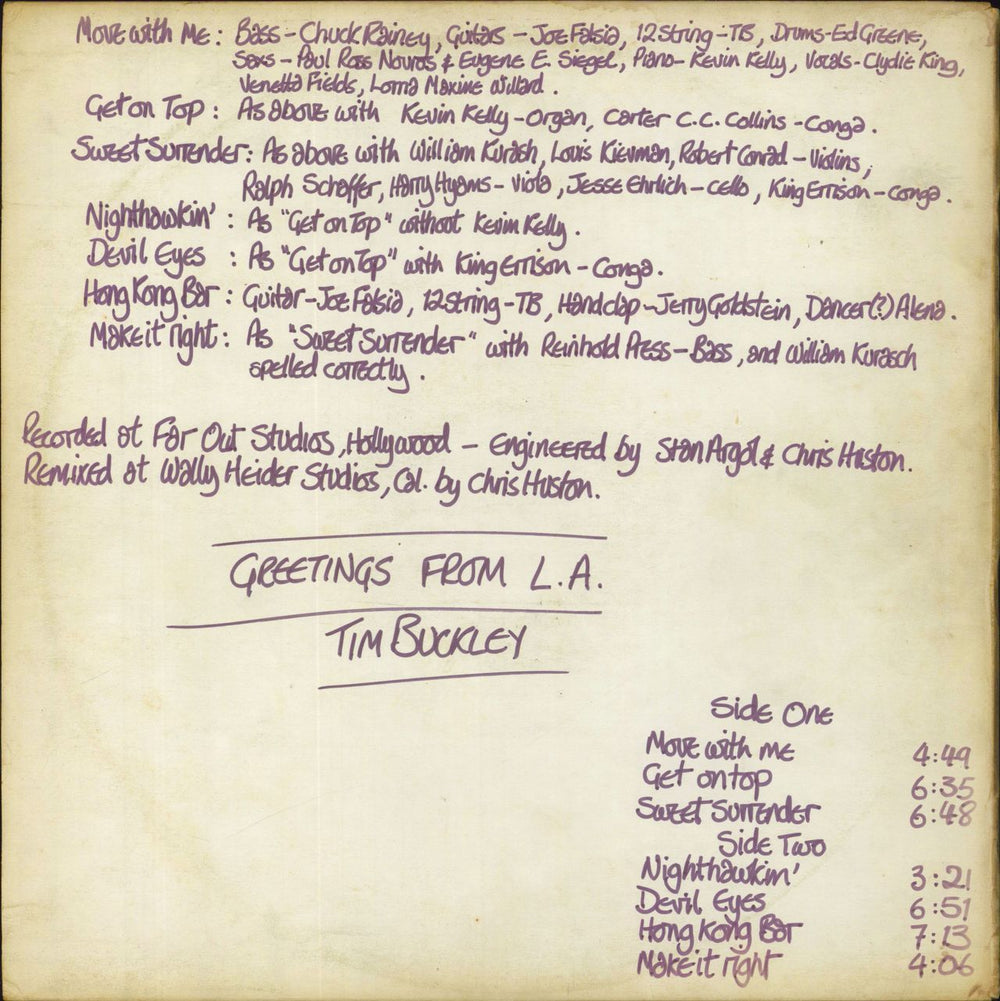 Move with Me : Bass – Chuck Rainey, Guitars – Joe Falsia, 12 String – TB, Drums – Ed Greene,
Saxs – Paul Ross Novros & Eugene E. Siegel, Piano – Kevin Kelly, Vocals – Clydie King,
Venetta Fields, Lorna Maxine Willard.
Get on Top : As above with Kevin Kelly – Organ, Carter C.C. Collins – Conga.
Sweet Surrender : As above with William Kurash, Louis Kievman, Robert Conrad – Violins,
Ralph Schaffer, Harry Hyams – viola, Jesse Ehrlich – cello, King Errison – conga.
Nighthawkin' : As "Get on Top" without Kevin Kelly.
Devil Eyes : As "Get on Top" with King Errison – Conga.
Hong Kong Bar : Guitar – Joe Falsia, 12 String – TB, Handclap – Jerry Goldstein, Dancer(?) Alena.
Make it right : As "Sweet Surrender" with Reinhold Press – Bass, and William Kurasch
spelled correctly.
Recorded at Far Out Studios, Hollywood – engineered by Stan Argol & Chris Huston.
Remixed at Wally Heider Studios, Cal. by Chris Huston.
GREETINGS FROM L.A.
TIM BUCKLEY
Side One
Move with me 4:49
Get on top 6:35
Sweet Surrender 6:48
Side Two
Nighthawkin' 3:21
Devil Eyes 6:51
Hong Kong Bar 7:13
Make it right 4:06